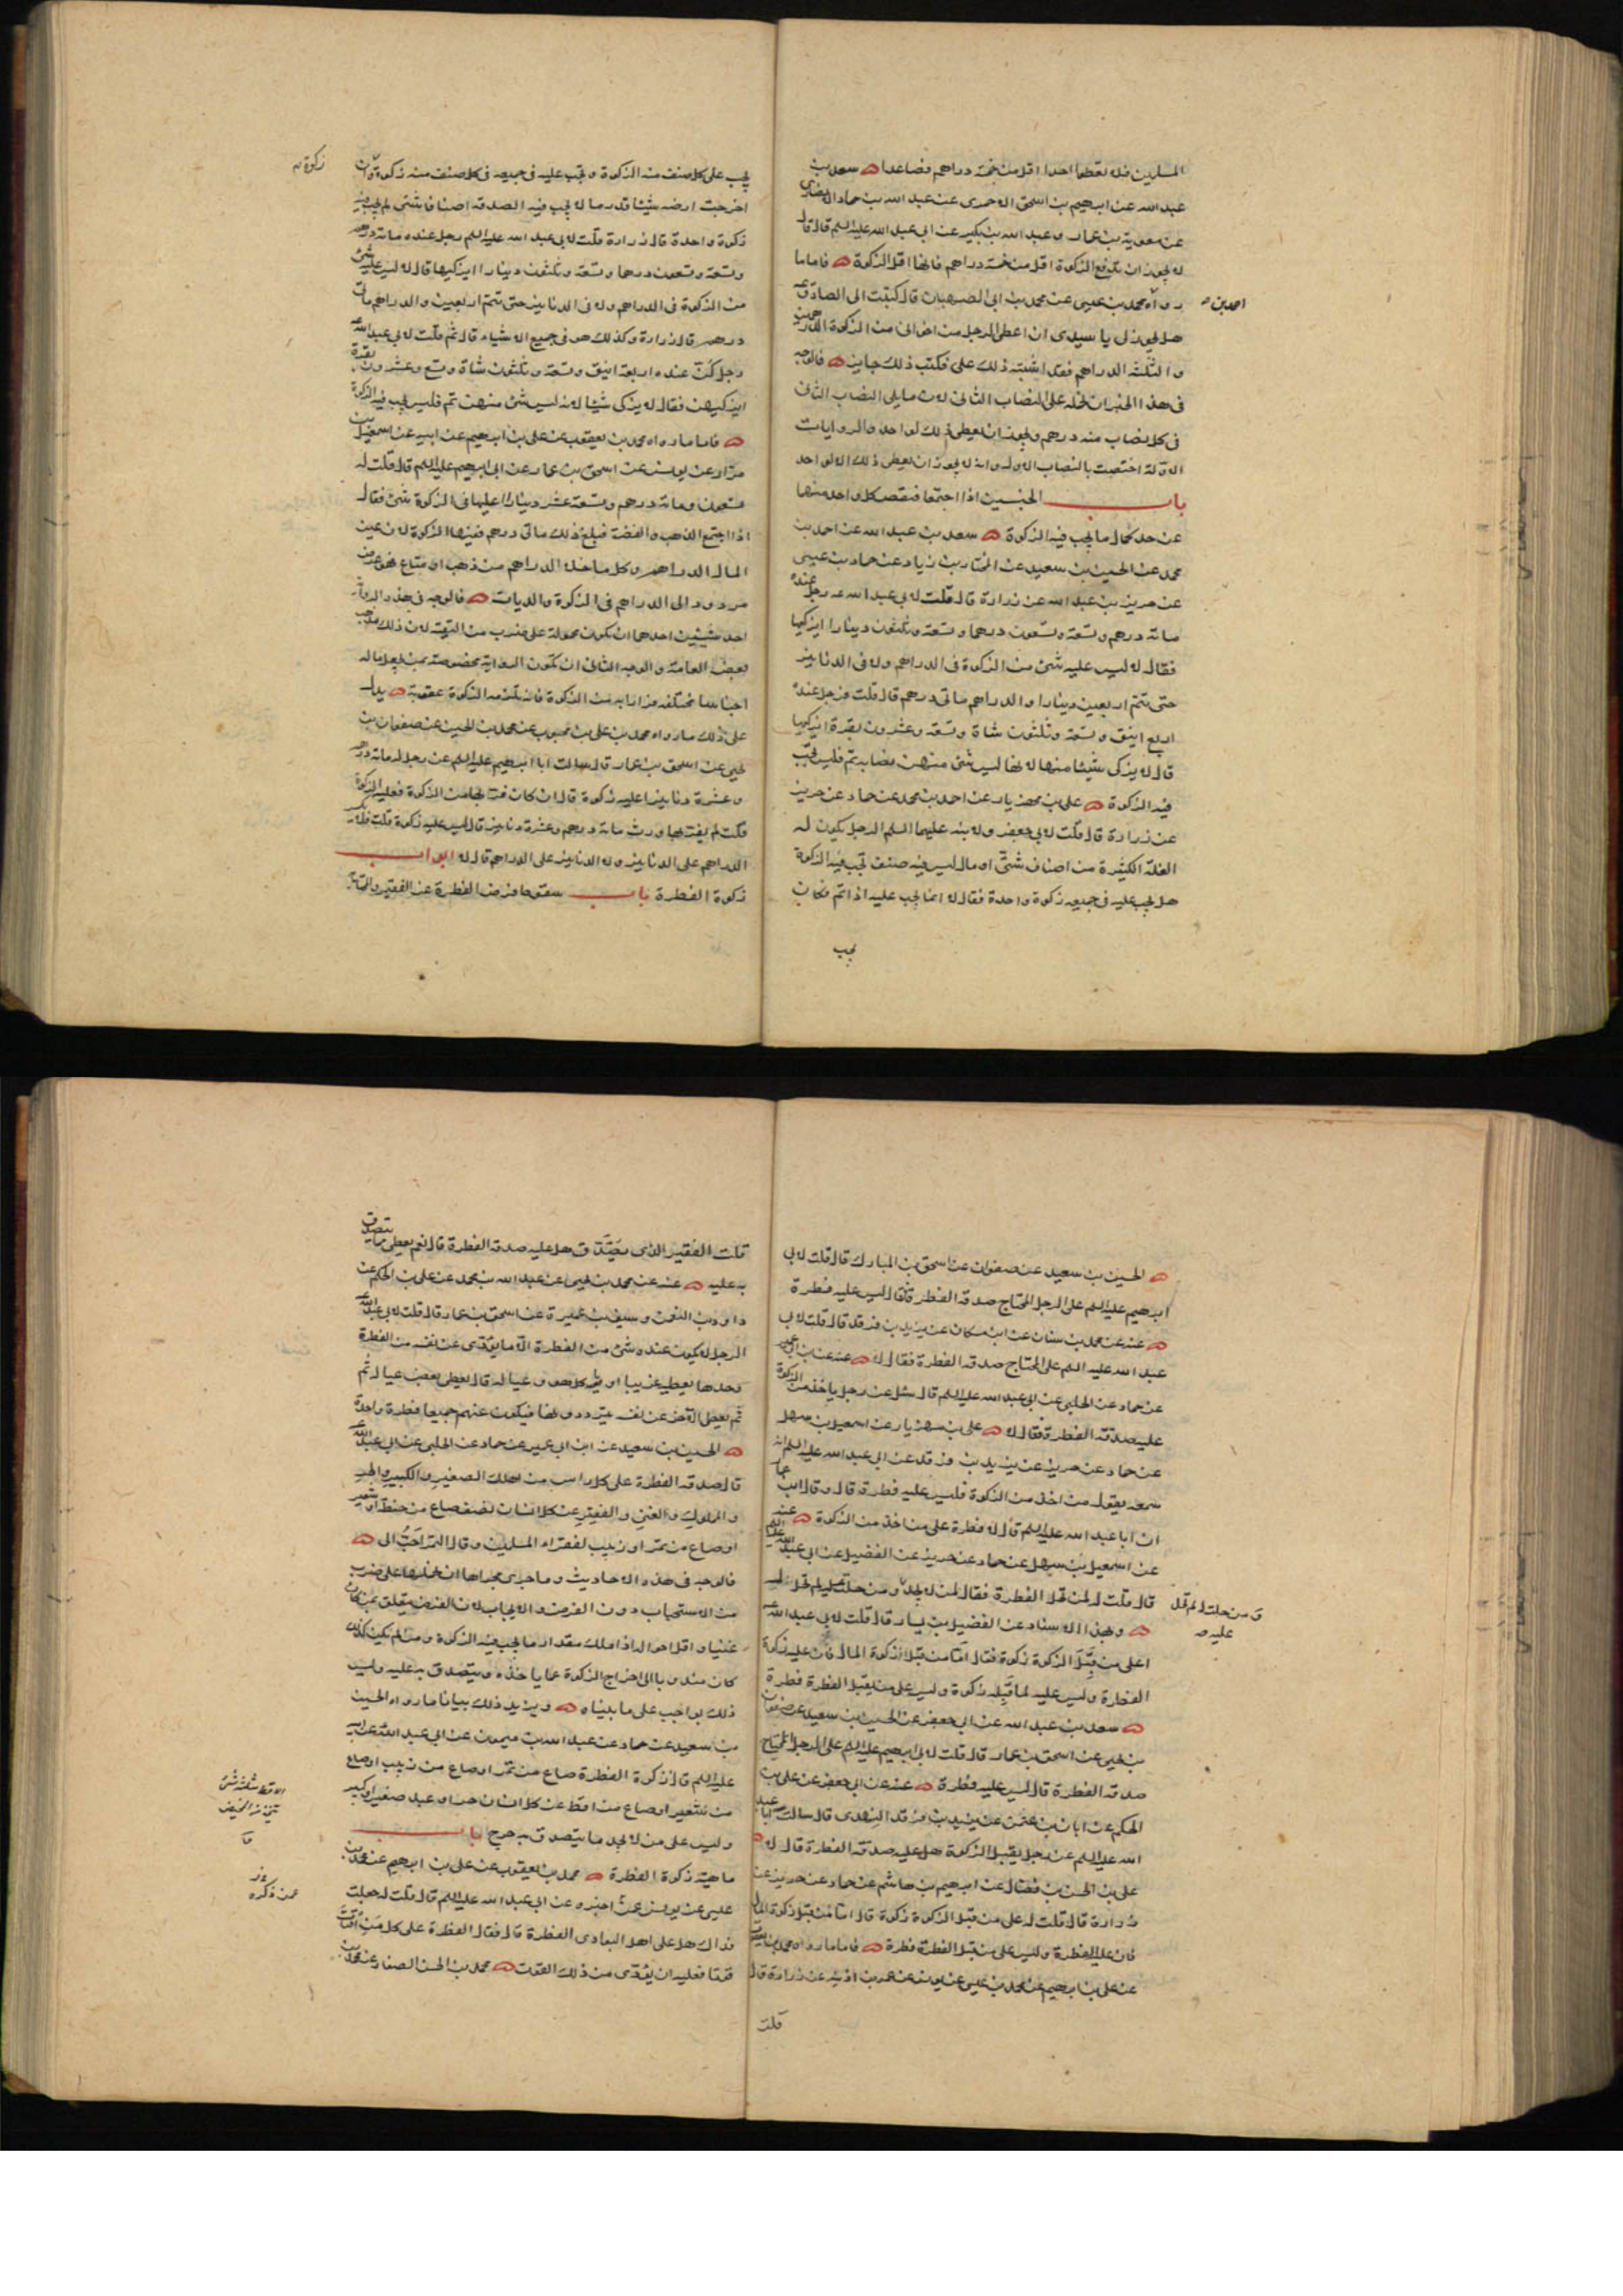 المسلمين فلا تعطوا احدا اقل من خمسة دراهم فصاعدا سعد بن
عبد الله عن ابرهيم بن اسحق الاحمرى عن عبد الله بن حماد الانصارى
عن معوية بن عمار وعبد الله بن بكير عن ابى عبد الله عليه السلم قال قال
لا يجوز ان يدفع الزكوة اقل من خمسة دراهم فانها اقل الزكوة فاما ما
رواه محمد بن عيسى عن محمد بن ابى الصهبان قال كتبت الى الصادق
احمد بن
هل يجوز لى يا سيدى ان اعطى الرجل من اخوانى من الزكوة الدرهمين
والثلثة الدراهم فقد اشتبه ذلك على فكتب ذلك جايز فالوجه
فى هذا الخبر ان نحمله على النصاب الثانى لان ما يلى النصاب الثانى
فى كل نصاب منه درهم ويجوز ان يعطى ذلك لواحد والروايات
الاولة اختصت بالنصاب الاول وانه لا يجوز ان يعطى ذلك الا لواحد
باب الجنسين اذا اجتمعا فنقص كل واحد منهما
عن حد كمال ما يجب فيه الزكوة سعد بن عبد الله عن احمد بن
محمد عن الحسين بن سعيد عن المختار بن زياد عن حماد بن عيسى
عن حريز بن عبد الله عن زرارة قال قلت لابى عبد الله رجل عنده
مائة درهم وتسعة وتسعون درهما وتسعة وثلثون دينارا ايزكيها
فقال لا ليس عليه شئ من الزكوة فى الدراهم ولا فى الدنانير
حتى تتم اربعين دينارا والدراهم مائتى درهم قال قلت فرجل عنده
اربع اينق وتسعة وثلثون شاة وتسعة وعشرون بقرة ايزكيها
قال لا يزكى شيئا منها لانها ليس شئ منهن نصابه تم فليس تجب
فيه الزكوة على بن مهزيار عن احمد بن محمد عن حماد عن حريز
عن زرارة قال قلت لابى جعفر ولابنه عليهما السلم الرجل يكون له
الغلة الكثيرة من اصناف شتى او مال ليس فيه صنف تجب فيه الزكوة
هل يجب عليه فى جميعه زكوة واحدة فقال لا انما يجب عليه اذا تم فكان
يجب
يجب على كل صنف منه الزكوة وتجب عليه فى جميعه فى كل صنف منه زكوة وان
زكوة
اخرجت ارضه شيئا قدر ما لا يجب فيه الصدقة اصنافا شتى لم يجب فيه
زكوة واحدة قال زرارة قلت لابى عبد الله عليه السلم رجل عنده مائة درهم
وتسعة وتسعون درهما وتسعة وثلثون دينارا ايزكيها قال لا ليس عليه شئ
من الزكوة فى الدراهم ولا فى الدنانير حتى تتم اربعين والدراهم مائتى
درهم قال زرارة وكذلك هو فى جميع الاشياء قال ثم قلت لابى عبد الله
رجل كن عنده اربعة اينق وتسعة وثلثون شاة وتسع وعشرون بقرة
ايزكيهن فقال لا يزكى شيئا لانه ليس شئ منهن تم فليس يجب فيه الزكوة
فاما ما رواه محمد بن يعقوب عن على بن ابرهيم عن ابيه عن اسمعيل بن
مرار عن يونس عن اسحق بن عمار عن ابى ابرهيم عليه السلم قال قلت له
تسعون ومائة درهم وتسعة عشر دينارا اعليها فى الزكوة شئ فقال
اذا اجتمع الذهب والفضة فبلغ ذلك مائتى درهم ففيها الزكوة لان عين
المال الدراهم وكل ما خلا الدراهم من ذهب او متاع فهو عرض
مردود الى الدراهم فى الزكوة والديات فالوجه فى هذه الرواية
احد شيئين احدهما ان يكون محمولة على ضرب من التقية لان ذلك مذهب
بعض العامة والوجه الثانى ان تكون الرواية مخصوصة بمن جعل ماله
اجناسا مختلفة فرارا به من الزكوة فانه تلزمه الزكوة عقوبة يدل
على ذلك ما رواه محمد بن على بن محبوب عن محمد بن الحسين عن صفوان بن
يحيى عن اسحق بن عمار قال سالت ابا ابرهيم عليه السلم عن رجل له مائة درهم
وعشرة دنانير اعليه زكوة قال ان كان فر بها من الزكوة فعليه الزكوة
قلت لم يفر بها ورث مائة درهم وعشرة دنانير قال ليس عليه زكوة قلت فلا تكسر
الدراهم على الدنانير ولا الدنانير على الدراهم قال لا ابواب
زكوة الفطرة باب سقوط فرض الفطرة عن الفقير والمحتاج
الحسين بن سعيد عن صفوان عن اسحق بن المبارك قال قلت لابى
ابرهيم عليه السلم على الرجل المحتاج صدقة الفطرة فقال ليس عليه فطرة
عنه عن محمد بن سنان عن ابن مسكان عن يزيد بن فرقد قال قلت لابى
عبد الله عليه السلم على المحتاج صدقة الفطرة فقال لا عنه عن ابن ابى عمير
عن حماد عن الحلبى عن ابى عبد الله عليه السلم قال سئل عن رجل ياخذ من الزكوة
عليه صدقة الفطرة فقال لا على بن مهزيار عن اسمعيل بن سهل
عن حماد عن حريز عن يزيد بن فرقد عن ابى عبد الله عليه السلم انه
سمعه يقول من اخذ من الزكوة فليس عليه فطرة قال وقال ابن عمار
ان ابا عبد الله عليه السلم قال لا فطرة على من اخذ من الزكوة عنه
عن اسمعيل بن سهل عن حماد عن حريز عن الفضيل عن ابى عبد الله عليه السلم
قال قلت له لمن تحل الفطرة فقال لمن لا يجد ومن حلت له لم تحل عليه
ومن حلت له لم تحل
عليه
وبهذا الاسناد عن الفضيل بن يسار قال قلت لابى عبد الله
اعلى من قبل الزكوة زكوة فقال اما من قبل زكوة المال فان عليه زكوة
الفطرة وليس عليه لما قبله زكوة وليس على من يقبل الفطرة فطرة
سعد بن عبد الله عن ابى جعفر عن الحسين بن سعيد عن صفوان
بن يحيى عن اسحق بن عمار قال قلت لابى ابرهيم عليه السلم على الرجل المحتاج
صدقة الفطرة قال ليس عليه فطرة عنه عن ابى جعفر عن على بن
الحكم عن ابان بن عثمن عن يزيد بن فرقد النهدى قال سالت ابا عبد
الله عليه السلم عن رجل يقبل الزكوة هل عليه صدقة الفطرة قال لا
على بن الحسن بن فضال عن ابرهيم بن هاشم عن حماد عن حريز عن
زرارة قال قلت له على من قبل الزكوة زكوة قال اما من قبل زكوة المال
فان عليه الفطرة وليس على من قبل الفطرة فطرة فاما ما رواه محمد بن يعقوب
عن على بن ابرهيم عن محمد بن عيسى عن يونس عن عمر بن اذينة عن زرارة قال
قلت
قلت الفقير الذى يتصدق عليه هل عليه صدقة الفطرة قال نعم يعطى مما يتصدق
به عليه عنه عن محمد بن يحيى عن عبد الله بن محمد عن على بن الحكم عن
داود بن النعمن وسيف بن عميرة عن اسحق بن عمار قال قلت لابى عبد الله
الرجل لا يكون عنده شئ من الفطرة الا ما يؤدى عن نفسه من الفطرة
وحدها يعطيه غريبا او ياكل هو وعياله قال يعطى بعض عياله ثم
ثم يعطى الاخر عن نفسه يترددونها فيكون عنهم جميعا فطرة واحدة
الحسين بن سعيد عن ابن ابى عمير عن حماد عن الحلبى عن ابى عبد الله
قال صدقة الفطرة على كل راس من اهلك الصغير والكبير والحر
والمملوك والغنى والفقير عن كل انسان نصف صاع من حنطة او شعير
او صاع من تمر او زبيب لفقراء المسلمين وقال التمر احب الى
فالوجه فى هذه الاحاديث وما جرى مجراها ان نحملها على ضرب
من الاستحباب دون الفرض والايجاب لان الفرض يتعلق بمن كان
غنيا واقل احواله اذا ملك مقدار ما يجب فيه الزكوة ومن لم يكن كذلك
كان مندوبا الى اخراج الزكوة عما ياخذه ويتصدق به عليه وليس
ذلك بواجب على ما بيناه ويزيد ذلك بيانا ما رواه الحسين
بن سعيد عن حماد عن عبد الله بن ميمون عن ابى عبد الله عن ابيه
عليه السلم قال زكوة الفطرة صاع من تمر او صاع من زبيب او صاع
من شعير او صاع من اقط عن كل انسان حر او عبد صغير او كبير
الاقط مثلثة شئ
يتخذ من المخيض
ق
وليس على من لا يجد ما يتصدق به حرج باب
ماهية زكوة الفطرة محمد بن يعقوب عن على بن ابرهيم عن محمد بن
عيسى عن يونس عمن اخبره عن ابى عبد الله عليه السلم قال قلت له جعلت
عمن ذكره
فداك هل على اهل البوادى الفطرة قال فقال الفطرة على كل من اقتات
قوتا فعليه ان يؤدى من ذلك القوت محمد بن الحسن الصفار عن محمد بن